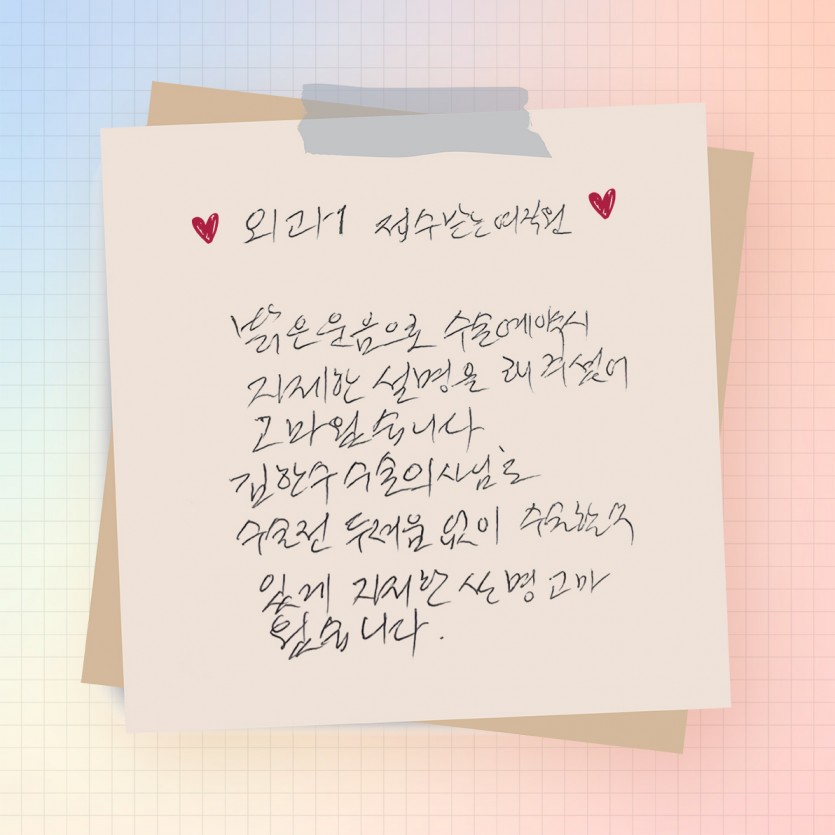 외과1 접수받는여직원
밝은웃음으로 수술예약시
자제한 설명을 해주셨어
고마웠습니다
김한수 수술의사님도
수술전 두려움 없이 수술할수
있게 자제한 설명 고마
웠습니다.